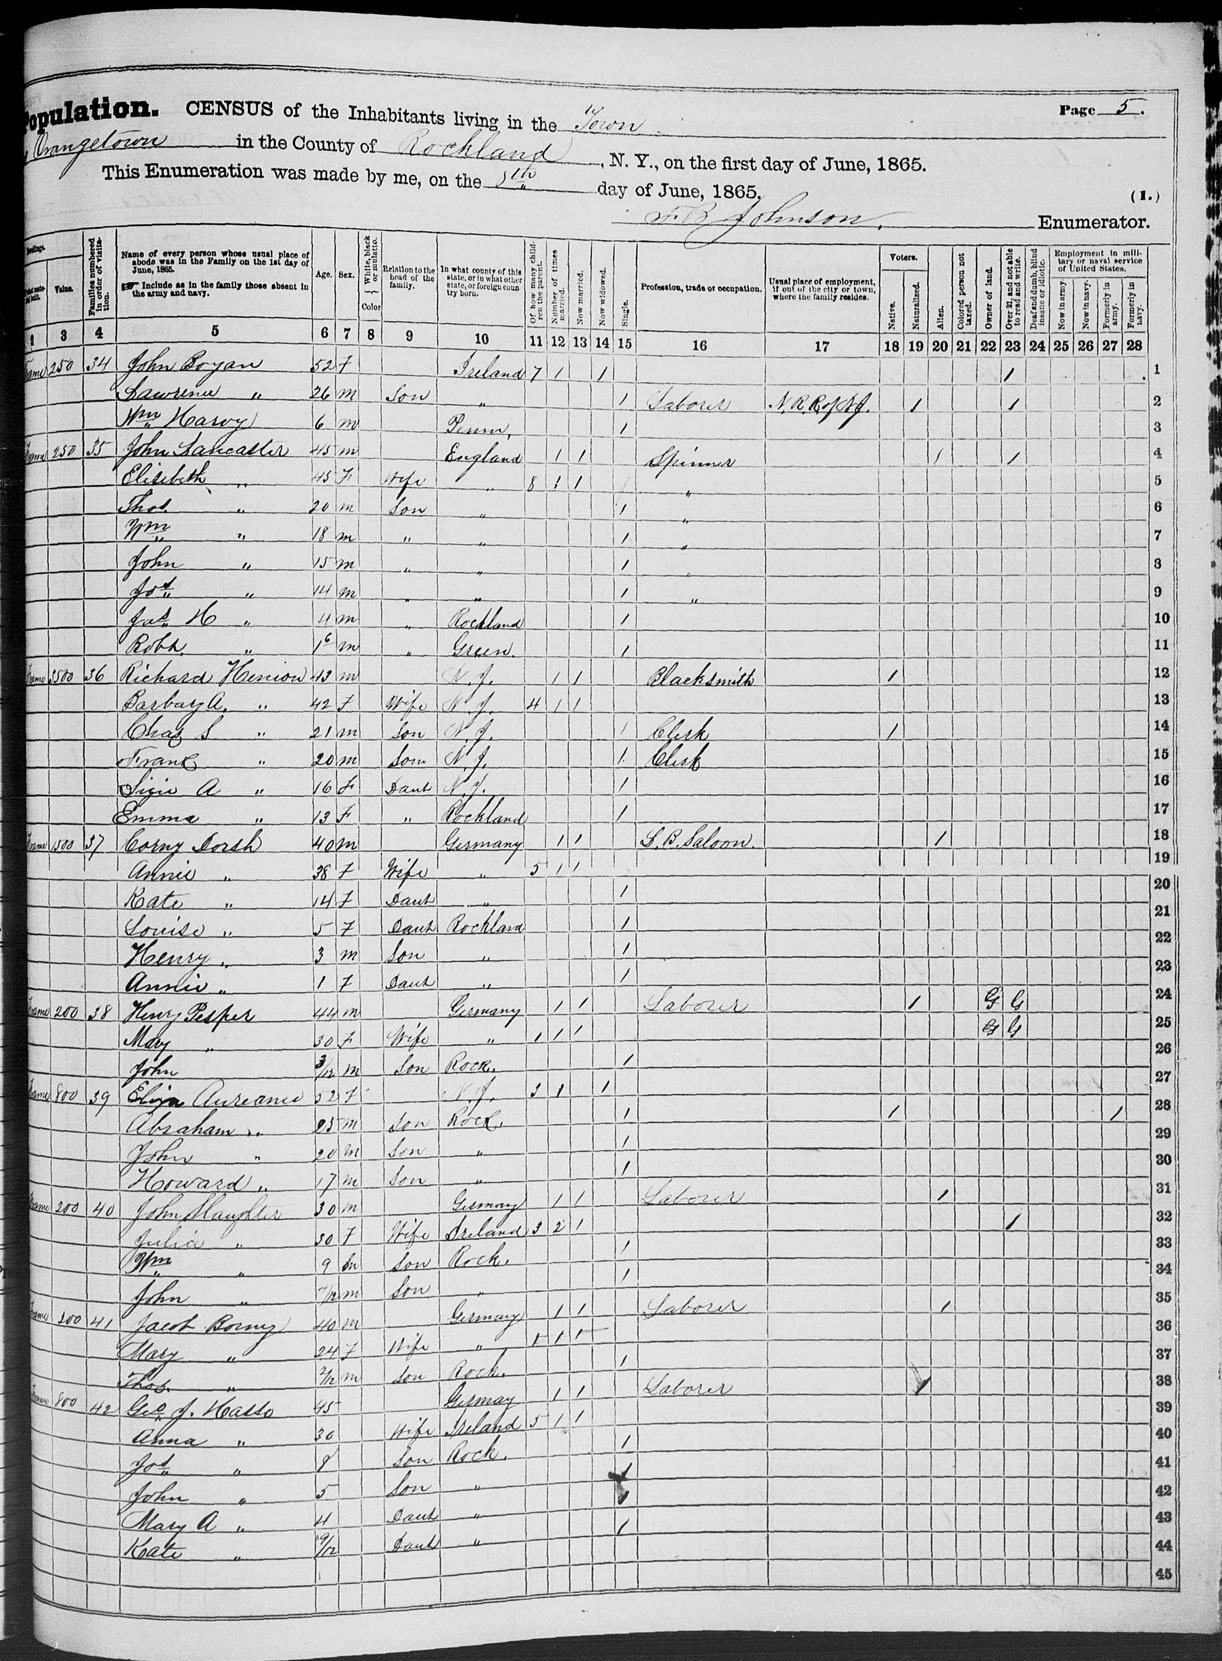 Population. CENSUS of the Inhabitants living in the Town Page 5.
Orangetown in the County of Rockland, N. Y., on the first day of June, 1865.
This Enumeration was made by me, on the 5th day of June, 1865. (1.)
F. B. Johnson. Enumerator.
Value. Families numbered in order of visitation. Name of every person whose usual place of abode was in the Family on the 1st day of June, 1865. Include as in the family those absent in the army and navy. Age. Sex. White, black or mulatto. Color Relation to the head of the family. In what county of this state, or in what other state, or foreign country born. Of how many children the parent. Number of times married. Now married. Now widowed. Single. Profession, trade or occupation. Usual place of employment, if out of the city or town, where the family resides. Voters. Native. Naturalized. Alien. Colored person not taxed. Owner of land. Over 21, and not able to read and write. Deaf and dumb, blind insane or idiotic. Employment in military or naval service of United States. Now in army. Now in navy. Formerly in army. Formerly in navy.
3 4 5 6 7 8 9 10 11 12 13 14 15 16 17 18 19 20 21 22 23 24 25 26 27 28
Frame 250 34 John Boyan 52 F Ireland 7 1 1 1 1
Lawrence " 26 m Son " 1 Laborer N R R of N J. 1 1 2
Wm Harvy 6 m Penn. 1 3
Frame 250 35 John Lancaster 45 m England 1 1 Spinner 1 1 4
Elisebeth " 45 F Wife " 8 1 1 " 5
Thos. " 20 m Son " 1 " 6
Wm " 18 m " " 1 " 7
John " 15 m " " 1 " 8
Jos " 14 m " " 1 " 9
Jas H " 4 m " Rockland 1 10
Robt. " 1 6 m " Green 1 11
Frame 3500 36 Richard Henion 43 m N. J. 1 1 Blacksmith 1 12
Barbary A. " 42 F Wife N. J. 4 1 1 13
Chas S " 21 m Son N. J. 1 Clerk 1 14
Frank " 20 m Son N. J. 1 Clerk 15
Sisie A " 16 F Daut N. J. 1 16
Emma " 13 F " Rockland 1 17
Frame 1500 37 Corny Dorsh 40 m Germany 1 1 L. B. Saloon. 1 18
Annie " 38 F Wife " 5 1 1 19
Kate " 14 F Daut " 1 20
Louise " 5 F Daut Rockland 1 21
Henry " 3 m Son " 1 22
Annie " 1 F Daut " 1 23
Frame 200 38 Henry Pesper 44 m Germany 1 1 Laborer 1 G G 24
Mary " 30 F Wife " 1 1 1 G G 25
John 3/12 m Son Rock. 1 26
Frame 800 39 Eliza Aureanie 52 F N. J. 3 1 1 27
Abraham " 23 m Son Rock. 1 1 1 28
John " 20 m Son " 1 29
Howard " 17 m Son " 1 30
Frame 200 40 John Slaughter 30 m Germay 1 1 Laborer 1 31
Julia " 30 F Wife Ireland 3 2 1 1 32
Wm " 9 m Son Rock. 1 33
John " 7/12 m Son " 1 34
Frame 300 41 Jacob Borny 40 m Germany 1 1 Laborer 1 35
Mary " 24 F Wife " 1 1 1 36
Thos. " 2/12 m Son Rock. 1 37
Frame 800 42 Geo J. Hasso 45 Germay 1 1 Laborer 1 38
Anna " 30 Wife Ireland 5 1 1 39
Jos " 8 Son Rock. 1 40
John " 5 Son " 1 41
Mary A " 4 Daut " 42
Kate " 9/12 Daut " 1 43
44
45